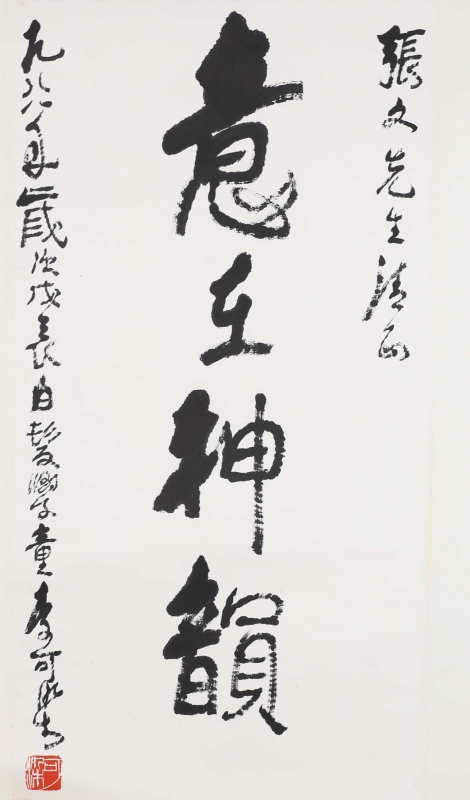 張文先生清
意在神韻
九八八年歲次戊辰白髮學童李可染
可染